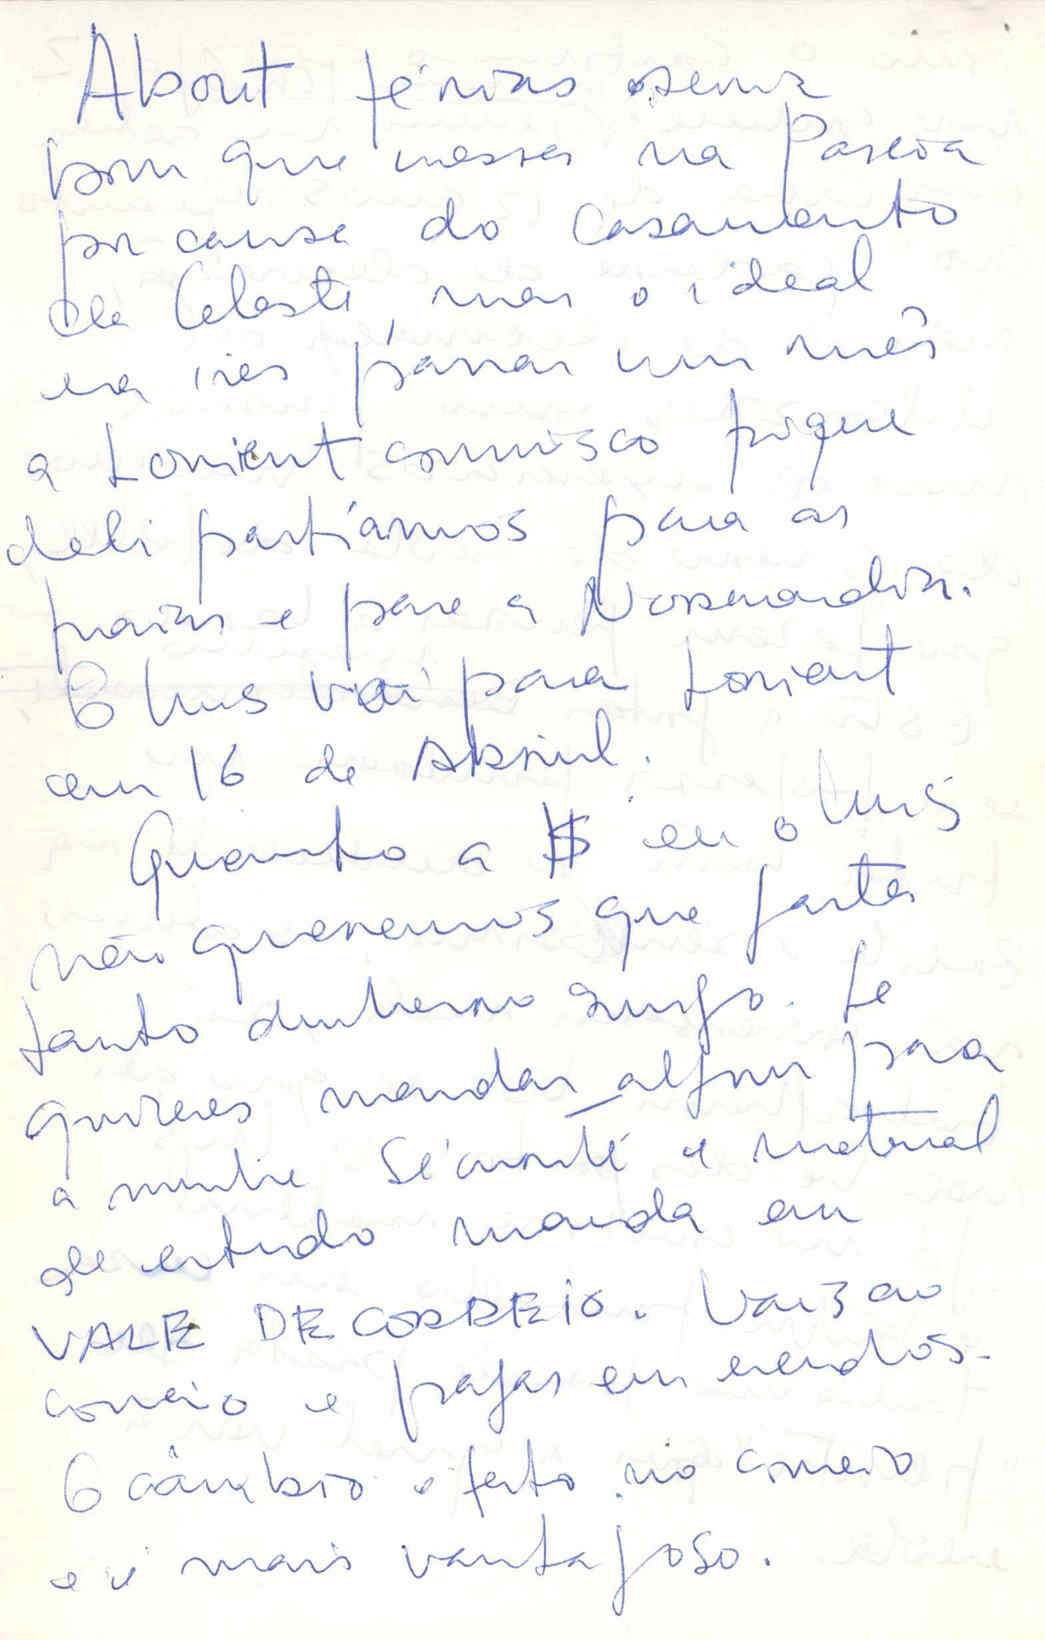 About férias seria
bom que viesses na Páscoa
por causa do casamento
da Celeste, mas o ideal
era ires passar um mês
a Lorient connosco porque
dali partíamos para as
praias e para a Normandia.
O Luís vai para Lorient
em 16 de Abril.
Quanto a $ eu e o Luís
não queremos que gastes
tanto dinheiro
quiseres mandar algum para
a minha Sécurité e material
de estudo manda em
VALE DE CORREIO. Vais ao
correio e pagas em escudos.
O câmbio é feito no correio
e é mais vantajoso.